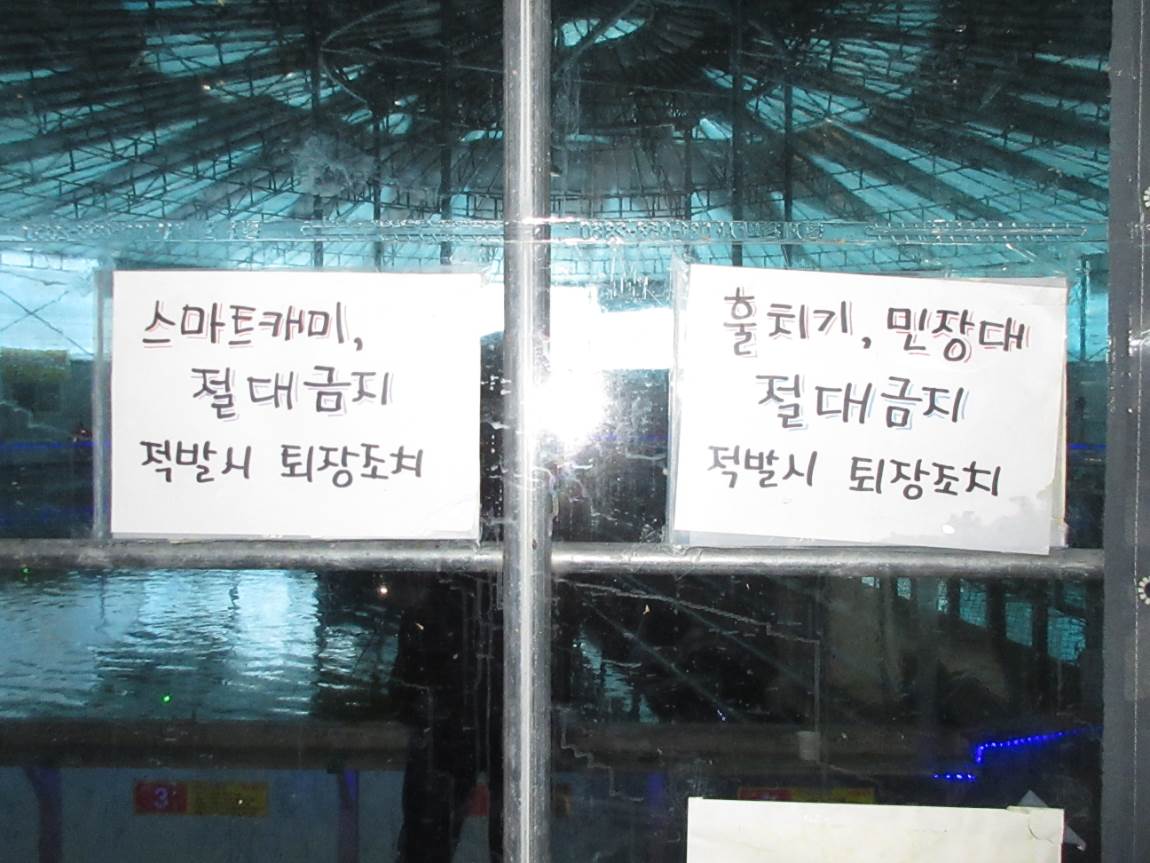 스마트캐미,
절대금지
적발시 퇴장조치
훌치기, 민장대
절대금지
적발시 퇴장조치
3